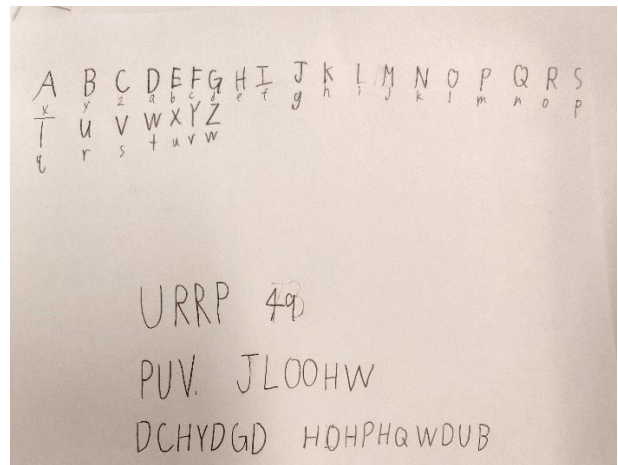 A B C D E F G H I J K L M N O P Q R S
x y z a b c d e f g h i j k l m n o p
T U V W X Y Z
q r s t u v w
URRP 49
PUV. JLOOHW
DCHYDGD HOHPHQWDUB